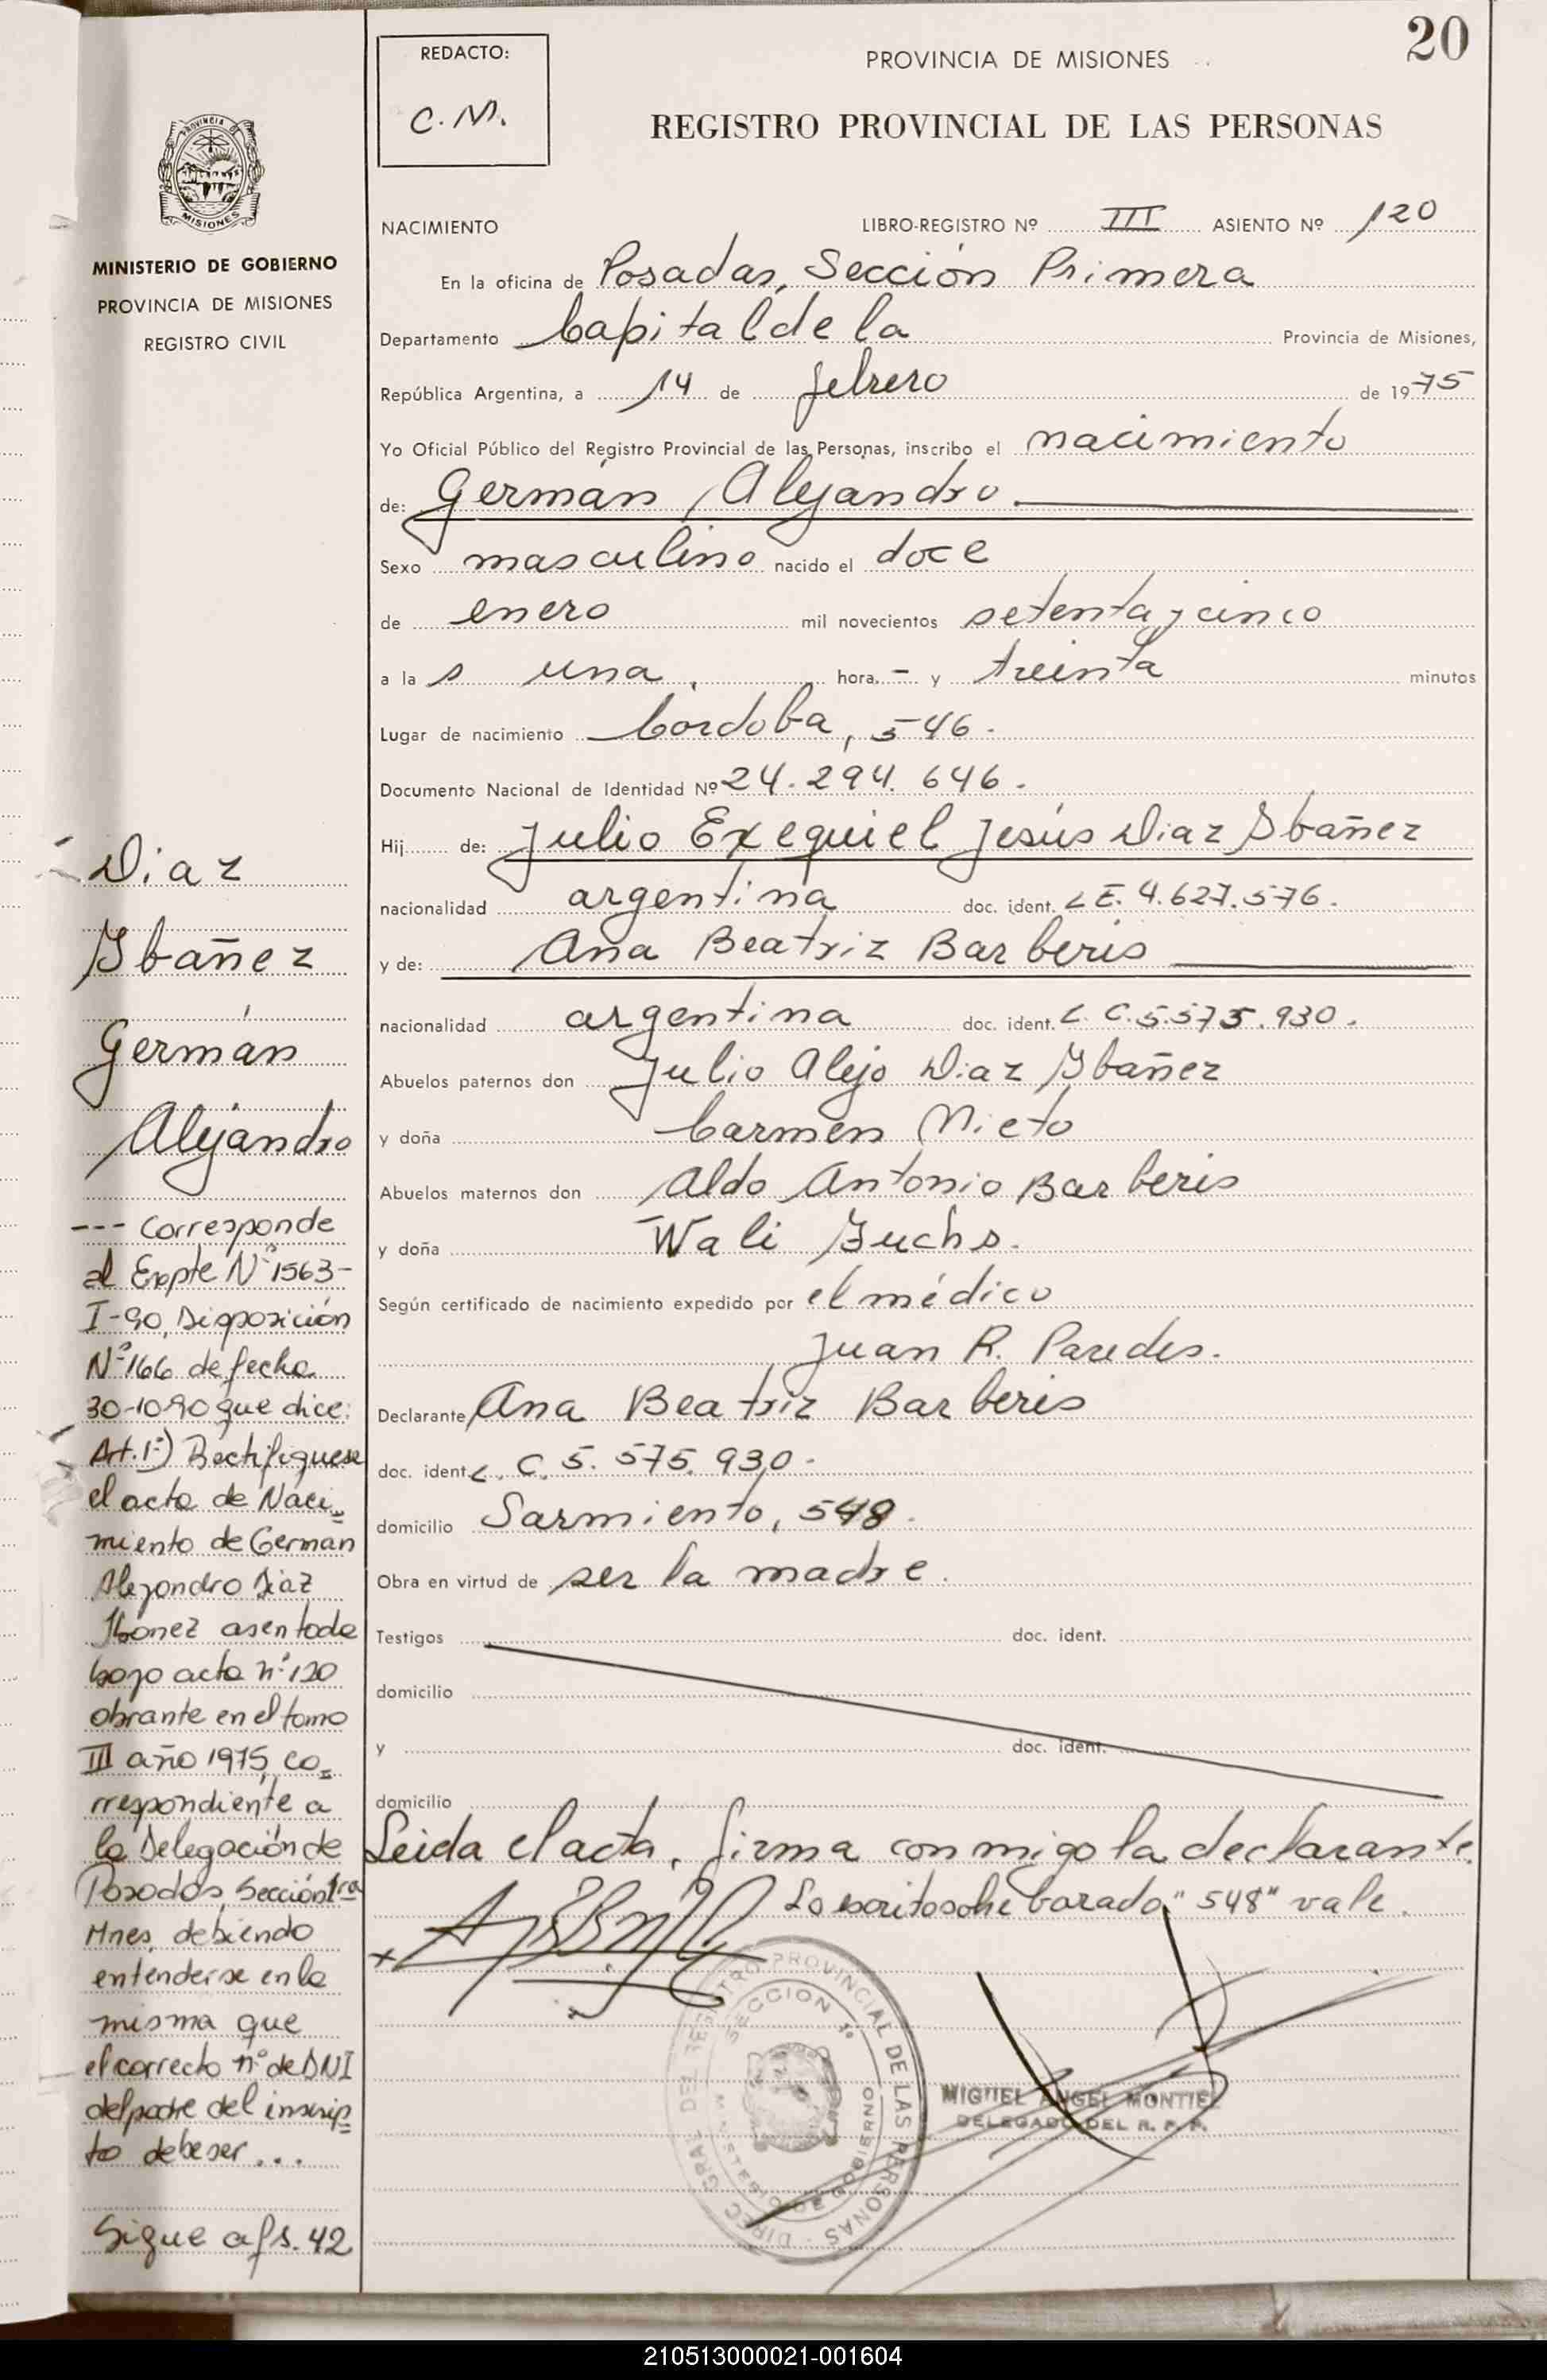 20
REDACTO:
C. M.
PROVINCIA DE MISIONES
REGISTRO PROVINCIAL DE LAS PERSONAS
PROVINCIA DE
MISIONES
MINISTERIO DE GOBIERNO
PROVINCIA DE MISIONES
REGISTRO CIVIL
NACIMIENTO LIBRO-REGISTRO Nº III ASIENTO Nº 120
En la oficina de Posadas, Sección Primera
Departamento Capital de la Provincia de Misiones,
República Argentina, a 14 de febrero de 1975
Yo Oficial Público del Registro Provincial de las Personas, inscribo el nacimiento
de: Germán Alejandro
Sexo masculino nacido el doce
de enero mil novecientos setenta y cinco
a la s una hora. – y treinta minutos
Lugar de nacimiento Córdoba, 546.
Documento Nacional de Identidad Nº 24.294.646.
Hij de: Julio Exequiel Jesús Diaz Ibañez
nacionalidad argentina doc. ident. L E. 4.627.576.
y de: Ana Beatriz Barberis
nacionalidad argentina doc. ident. L. C. 5.575.930.
Abuelos paternos don Julio Alejo Diaz Ibañez
y doña Carmen Nieto
Abuelos maternos don Aldo Antonio Barberis
y doña Wali Fuchs.
Según certificado de nacimiento expedido por el médico
Juan R. Paredes.
Declarante Ana Beatriz Barberis
doc. ident L. C. 5.575.930.
domicilio Sarmiento, 548.
Obra en virtud de ser la madre.
Testigos doc. ident.
domicilio
y doc. ident.
domicilio
Leida el acta, firma conmigo la declarante.
Lo escrito sobre borrado "548" vale.
Diaz
Ibañez
Germán
Alejandro
--- Corresponde
al Expte Nº 1563-
I-90, Disposición
Nº 166 de fecha
30-10-90 que dice:
Art. 1º) Rectifiquese
el acta de Naci=
miento de German
Alejandro Diaz
Ibañez asentada
bajo acta nº 120
obrante en el tomo
III año 1975, co=
rrespondiente a
la Delegación de
Posadas Sección 1ra
Mnes, debiendo
entenderse en la
misma que
el correcto nº de DNI
del padre del inscrip=
to debe ser...
Sigue a fs. 42
DIREC. GRAL. DEL REGISTRO PROVINCIAL DE LAS PERSONAS
SECCION 1º
MINISTERIO DE GOBIERNO
MIGUEL ANGEL MONTIEL
DELEGADO DEL R. P. P.
210513000021-001604